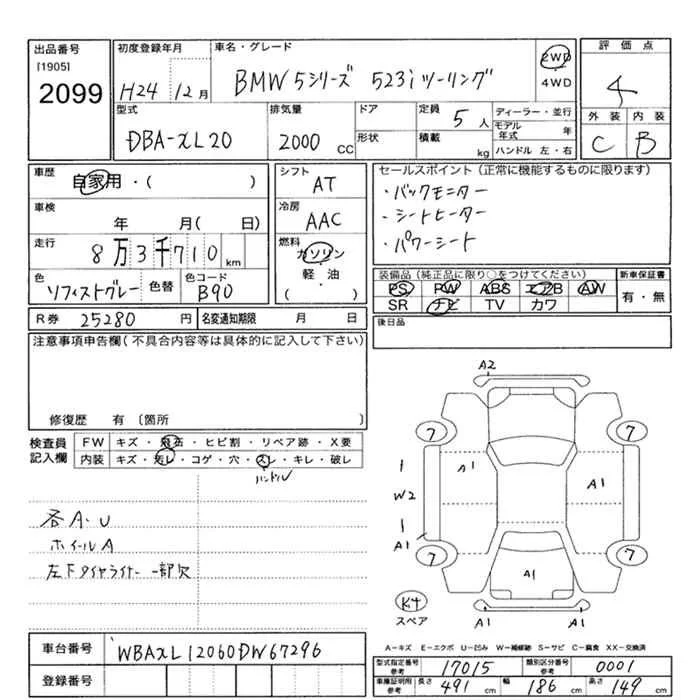 出品番号
[1905]
2099
初度登録年月
H24 12月
車名・グレード
BMW 5シリーズ 523i ツーリング
2WD
4WD
評価点
4
外装 内装
C B
型式
DBA-XL20
排気量
2000 CC
ドア
形状
定員 5 人
積載 kg
ディーラー・並行
モデル年式 年
ハンドル 左・右
車歴
自家用・( )
車検
年 月( 日)
走行
8万3千710 km
色
ソフィストグレー
色替
色コード
B90
シフト
AT
冷房
AAC
燃料
ガソリン
軽・油
( )
セールスポイント(正常に機能するものに限ります)
・バックモニター
・シートヒーター
・パワーシート
装備品(純正品に限り○をつけてください)
PS PW ABS エアB AW
SR ナビ TV カワ
新車保証書
有・無
R券 25280 円
名変通知期限 月 日
後日品
注意事項申告欄(不具合内容等は具体的に記入して下さい)
修復歴 有〔箇所 〕
検査員記入欄
FW キズ・飛石・ヒビ割・リペア跡・X要
内装 キズ・汚レ・コゲ・穴・スレ・キレ・破レ
ハンドル
各A・U
ホイールA
左下タイヤライナー一部欠
A2
7
7
A1
A1
W2
A1
7
7
A1
K4
スペア
A1
A1
A-キズ E-エクボ U-凹み W-補修跡 S-サビ C-腐食 XX-交換済
車台番号
WBAXL12060DW67296
登録番号
型式指定番号 参考 17015
類別区分番号 参考 0001
車庫証明用 参考 長さ 491 cm 幅 186 cm 高さ 149 cm